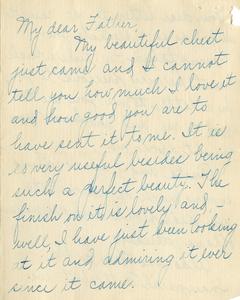 My dear Father,
My beautiful chest
just came and I cannot
tell you how much I love it
and how good you are to
have sent it to me. It is
so very useful besides being
such a perfect beauty. The
finish on it is lovely and –
well, I have just been looking
at it and admiring it ever
since it came.